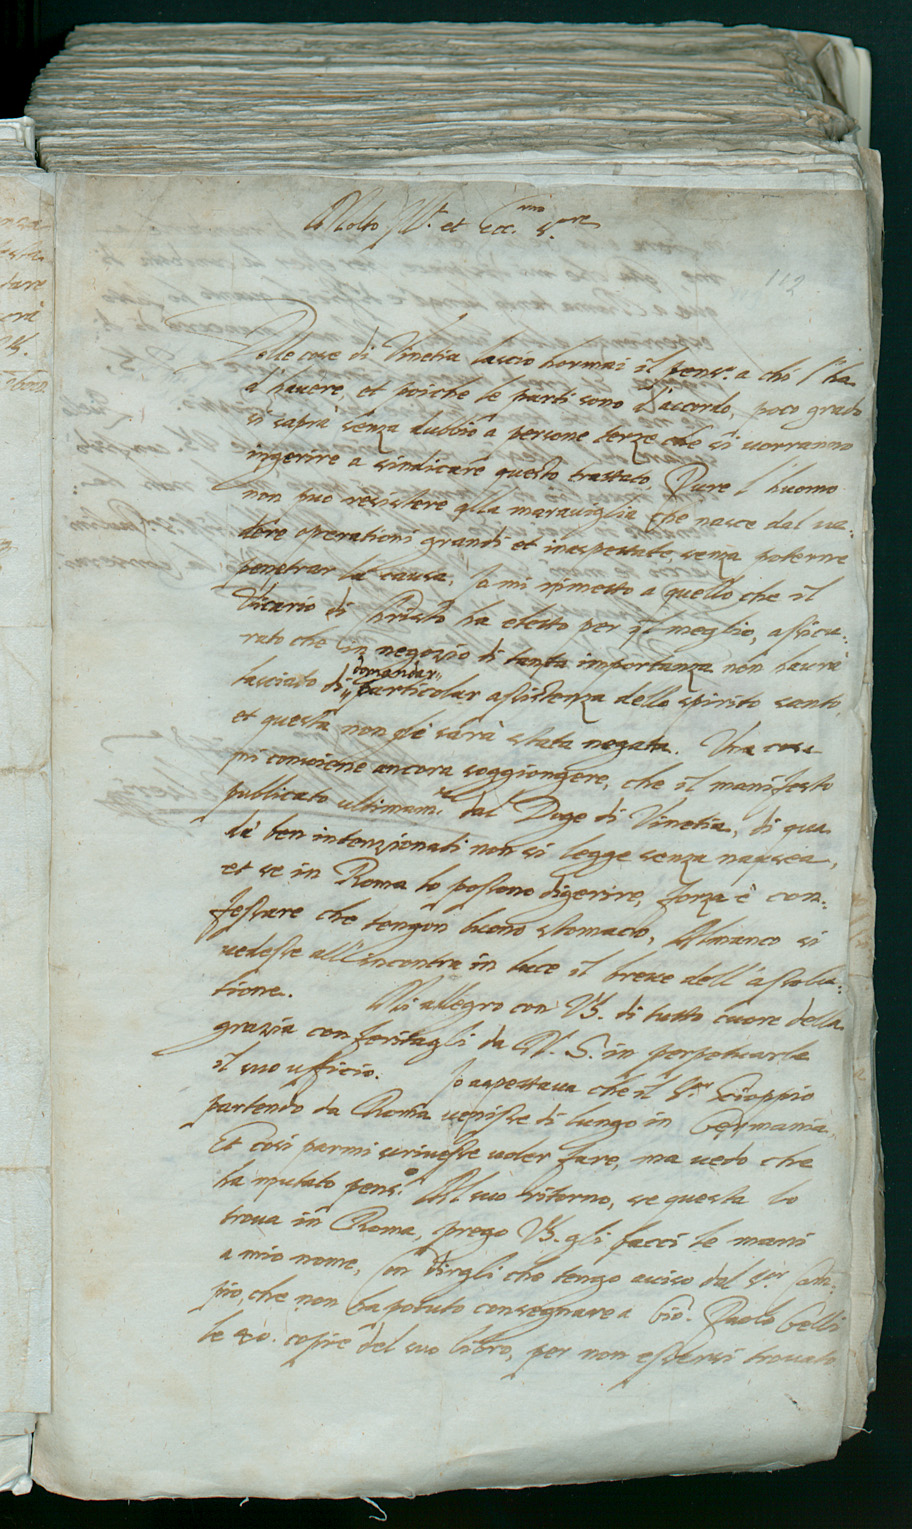 Molto Ill.re et Ecc.mo S.ore
112
Delle cose di Vinetia lascio hormai il pens.o a chi l'ha
d'havere, et poiche le parti sono d'accordo, poco grado
si saprà senza dubbio a persone terze che si vorranno
ingerire a sindicare questo trattato. Pure l'huomo
non puo resistere alla maraviglia che nasce dal ve-
dere operationi grandi et inaspettate, senza poterne
penetrar la causa. Io mi rimetto a quello che il
Vicario di Christo ha eletto per il meglio, assicu:
rato che in negozio di tanta importanza non havrà
lasciato di domandar particolar assistenza dello spirito santo,
et questa non gli sarà stata negata. Una cosa
mi conviene ancora soggiongere, che il manifesto
publicato ultimam.te dal Doge di Vinetia, di qua
da ben intenzionati non si legge senza nausea,
et se in Roma lo possono digerire, forza è con:
fessare che tengon buono stomaco, Almanco si
vedesse all'incontra in luce il breve dell'assolu:
tione. Mi allegro con VS. di tutto cuore della
grazia conferitagli da N. S. in perpetuarle
il suo ufficio. Io aspettava che il S.or Scioppio
partendo da Roma venisse di lungo in Germania,
Et cosi parmi scrivesse voler fare, ma vedo che
ha mutato pens.o Al suo ritorno, se questa lo
trova in Roma, prego VS. gli facci le mani
a mio nome, con dirgli che tengo aviso dal s.or
pio, che non ha potuto consegnare a Gio. Paolo Gelli
le copie del suo libro, per non essersi trovato